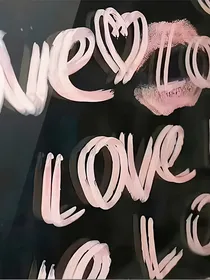 ve ♡ lo
LOVE
Lo
Lo